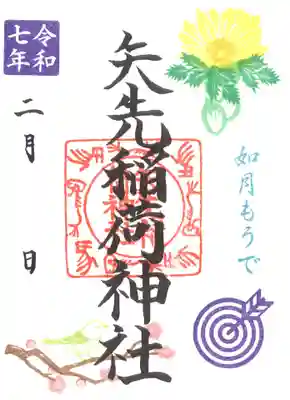 如月もうで
矢先稲荷神社
令和
七年
二月 日